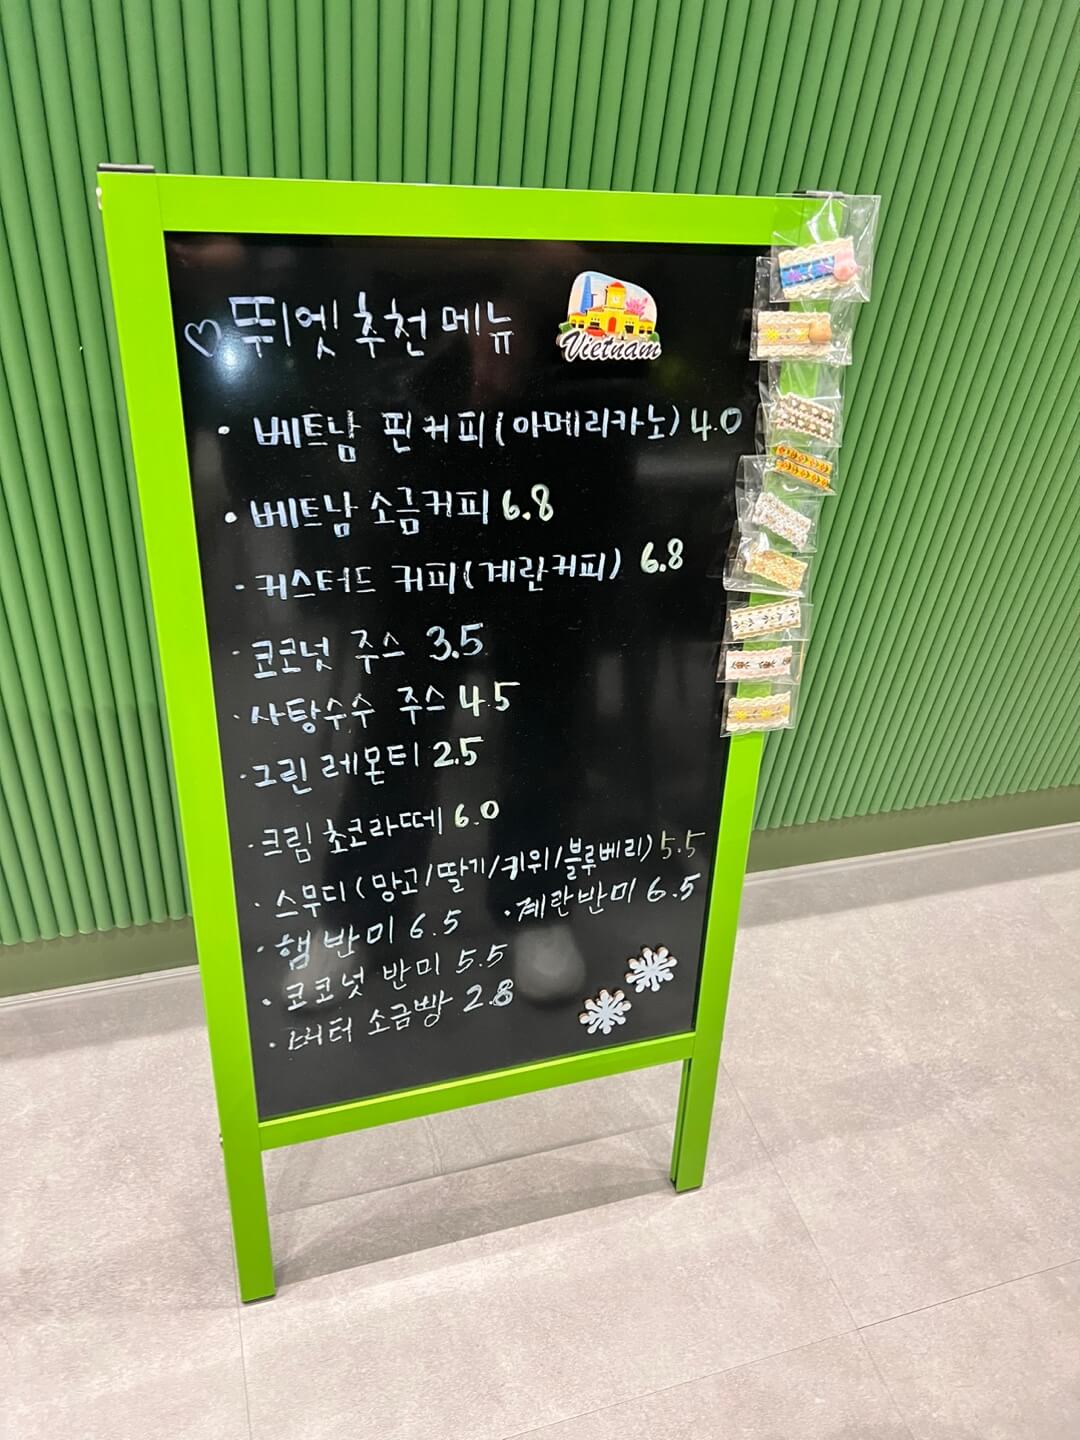 ♡뛰엣 추천메뉴
Vietnam
· 베트남 핀커피(아메리카노) 4.0
· 베트남 소금커피 6.8
· 커스터드 커피(계란커피) 6.8
· 코코넛 주스 3.5
· 사탕수수 주스 4.5
· 그린 레몬티 2.5
· 크림 초코라떼 6.0
· 스무디(망고/딸기/키위/블루베리) 5.5
· 햄 반미 6.5 · 계란반미 6.5
· 코코넛 반미 5.5
· 버터 소금빵 2.8